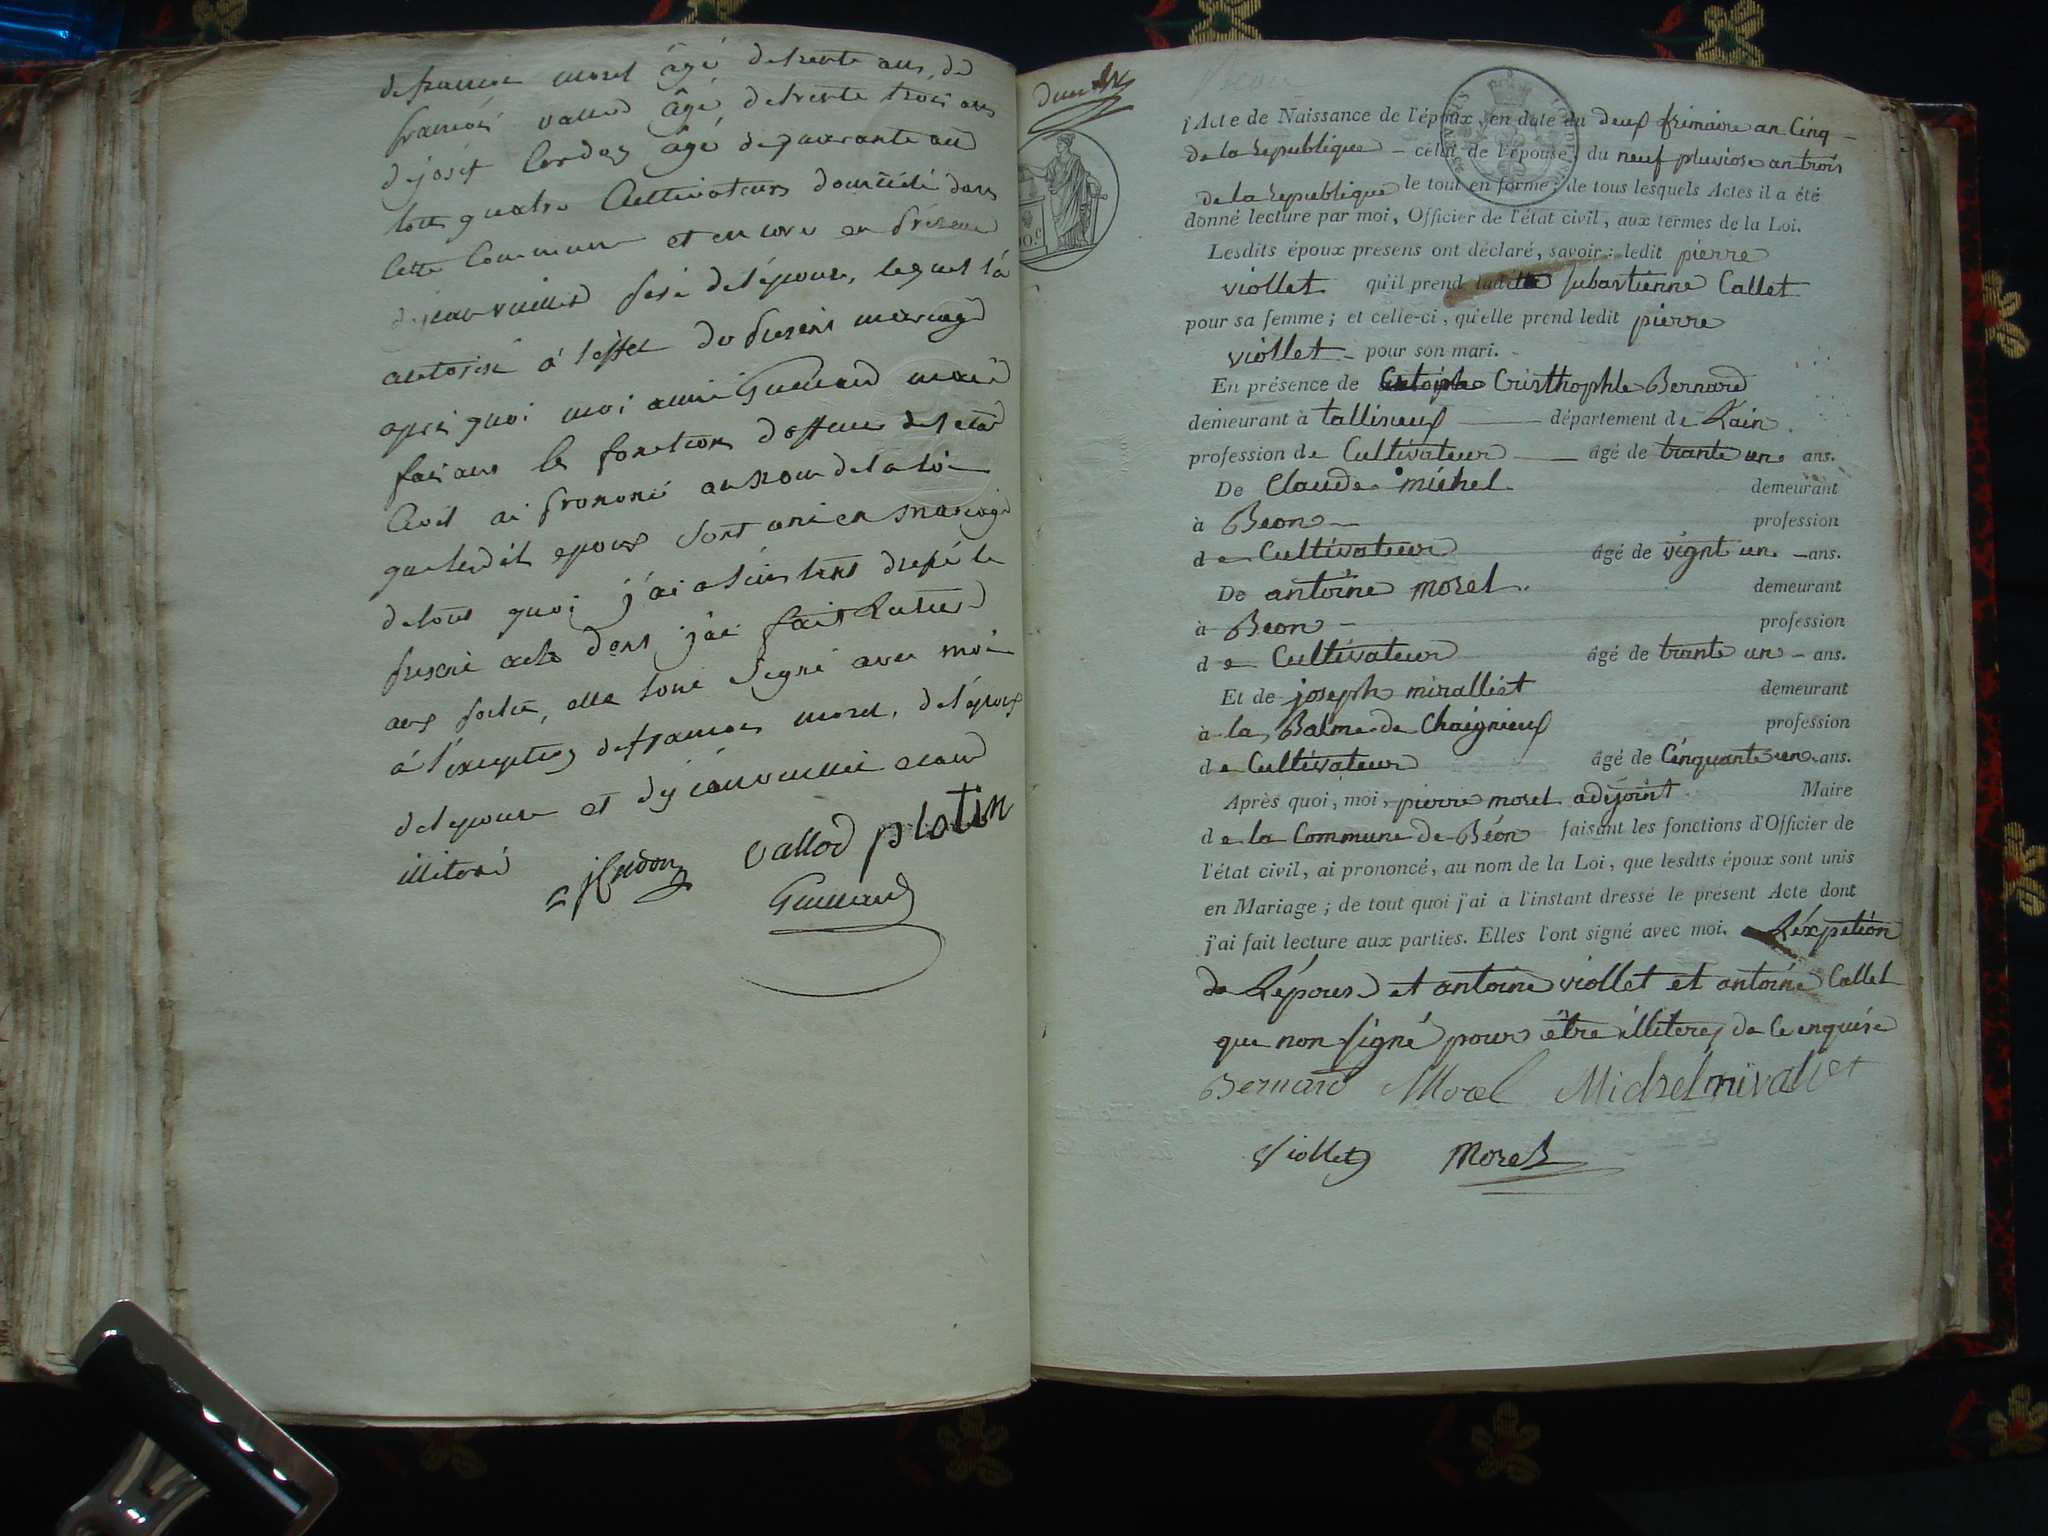 de françois morel âgé de trente ans, de
françois vallod âgé de trente trois ans
de joset Cordon âgé de quarante ans
tous quatre Cultivateurs domicilié dans
cette Commune et encore en présence
père de l'épouse, lequel l'a
autorisé à l'effet du present mariage
après quoi moi Guillaud maire
faisans les fonctions d'officier de l'etat
Civil ai prononcé au nom de la loi
que lesdits epoux sont uni en mariage
de tous quoi j'ai a l'instant dressé le
present acte dont j'ai fait lecture
aux partie, elle l'oné signé avec moi
à l'exception de françois morel, de l'epoux
de l'epouse et de
illiteré
vallod plotin
Guillaud
l'Acte de Naissance de l'époux, en date du deux frimaire an Cinq
de la republique – celui de l'épouse, du neuf pluviose an trois
de la republique le tout en forme; de tous lesquels Actes il a été
donné lecture par moi, Officier de l'état civil, aux termes de la Loi.
Lesdits époux présens ont déclaré, savoir: ledit pierre
viollet qu'il prend ladite sebastienne Callet
pour sa femme; et celle-ci, qu'elle prend ledit pierre
viollet – pour son mari.
En présence de Cristhophle Bernard
demeurant à tallisieux département de L'ain
profession de Cultivateur âgé de trante un ans.
De Claude michel demeurant
à Beon profession
de Cultivateur âgé de vignt un – ans.
De antoine morel demeurant
à Beon profession
de Cultivateur âgé de trante un – ans.
Et de joseph miralliet demeurant
à la Balme de Chaignieux profession
de Cultivateur âgé de Cinquante un ans.
Après quoi, moi, pierre morel adejoint Maire
de la Commune de Béon faisant les fonctions d'Officier de
l'état civil, ai prononcé, au nom de la Loi, que lesdits époux sont unis
en Mariage; de tout quoi j'ai a l'instant dressé le présent Acte dont
j'ai fait lecture aux parties. Elles l'ont signé avec moi. L'éxpetion
de L'épouse et antoine viollet et antoine Callet
que non signé pour être illiteres de ce enquise
Bernard Morel Michel miralliet
Viollet Morel